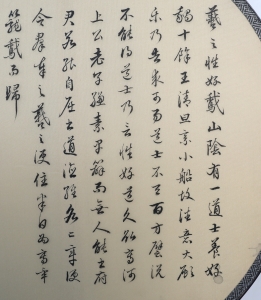 羲之性好鵞山陰有一道士養好
鵞十餘王清旦乘小船故往意大願
樂乃告求市易道士不與百方譬說
不能得道士乃言性好道久欲寫河
上公老子縑素早辦而無人能書府
君若能自屈書道德經各兩章便
合羣奉羲之便住半日為寫畢
籠鵞而歸